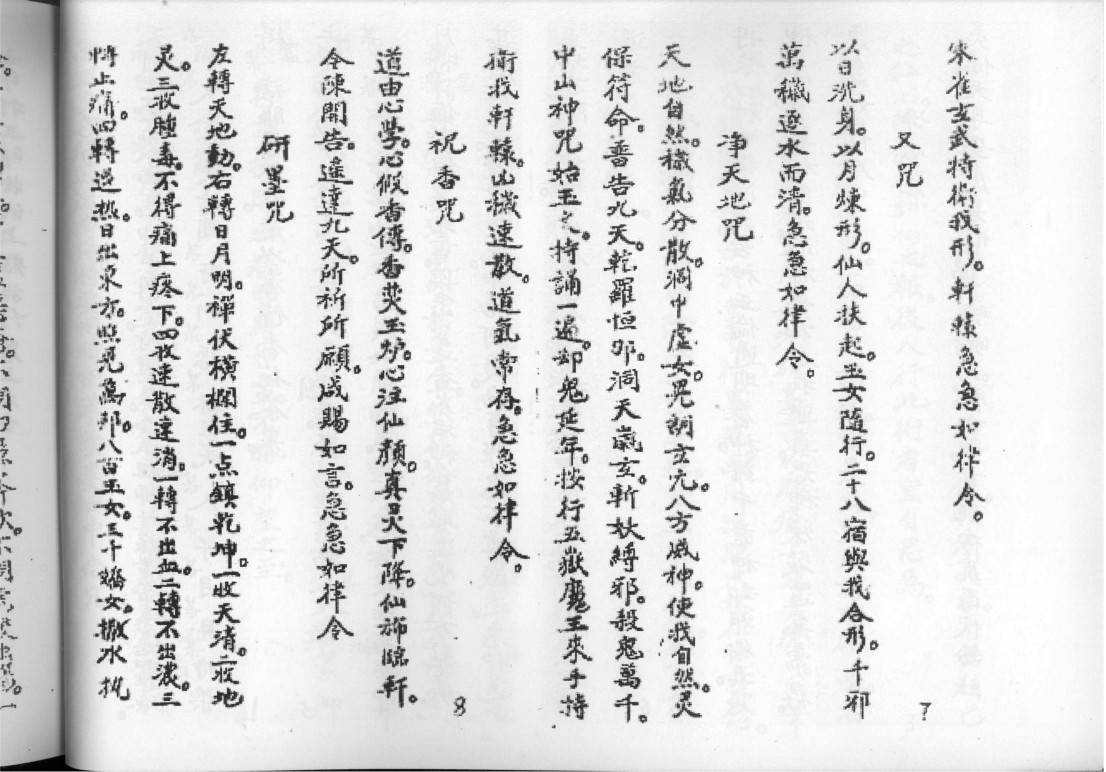 朱雀玄武持衛我形。軒轅急急如律令。
又咒
以日洗身。以月煉形。仙人扶起。玉女隨行。二十八宿與我合形。千邪
萬穢逐水而清。急急如律令。
净天地咒
天地自然。穢氣分散。洞中虛女。晃朗玄元。八方威神。使我自然。灵
保符命。普告九天。乾羅恒那。洞天嵗玄。斬妖縛邪。殺鬼萬千。
中山神咒始玉之。持誦一遍。却鬼延年。按行五嶽魔王來手持
衛我軒轅。凶穢速散。道氣常存。急急如律令。
7
祝香咒
道由心學。心假香傳。香焚玉炉。心注仙顏。真灵下降。仙旆臨軒。
令陳開告。遥達九天。所祈所願。咸賜如言。急急如律令
研墨咒
左轉天地動。右轉日月明。禪伏橫欄住。一点鎮乾坤。一收天清。二收地
灵。三收腫毒。不得痛上疼下。四收速散速消。一轉不出血。二轉不出濃。三
轉止痛。四轉退热。日出東方。照見萬邦。八百玉女。三千嬌女。撒水执
8